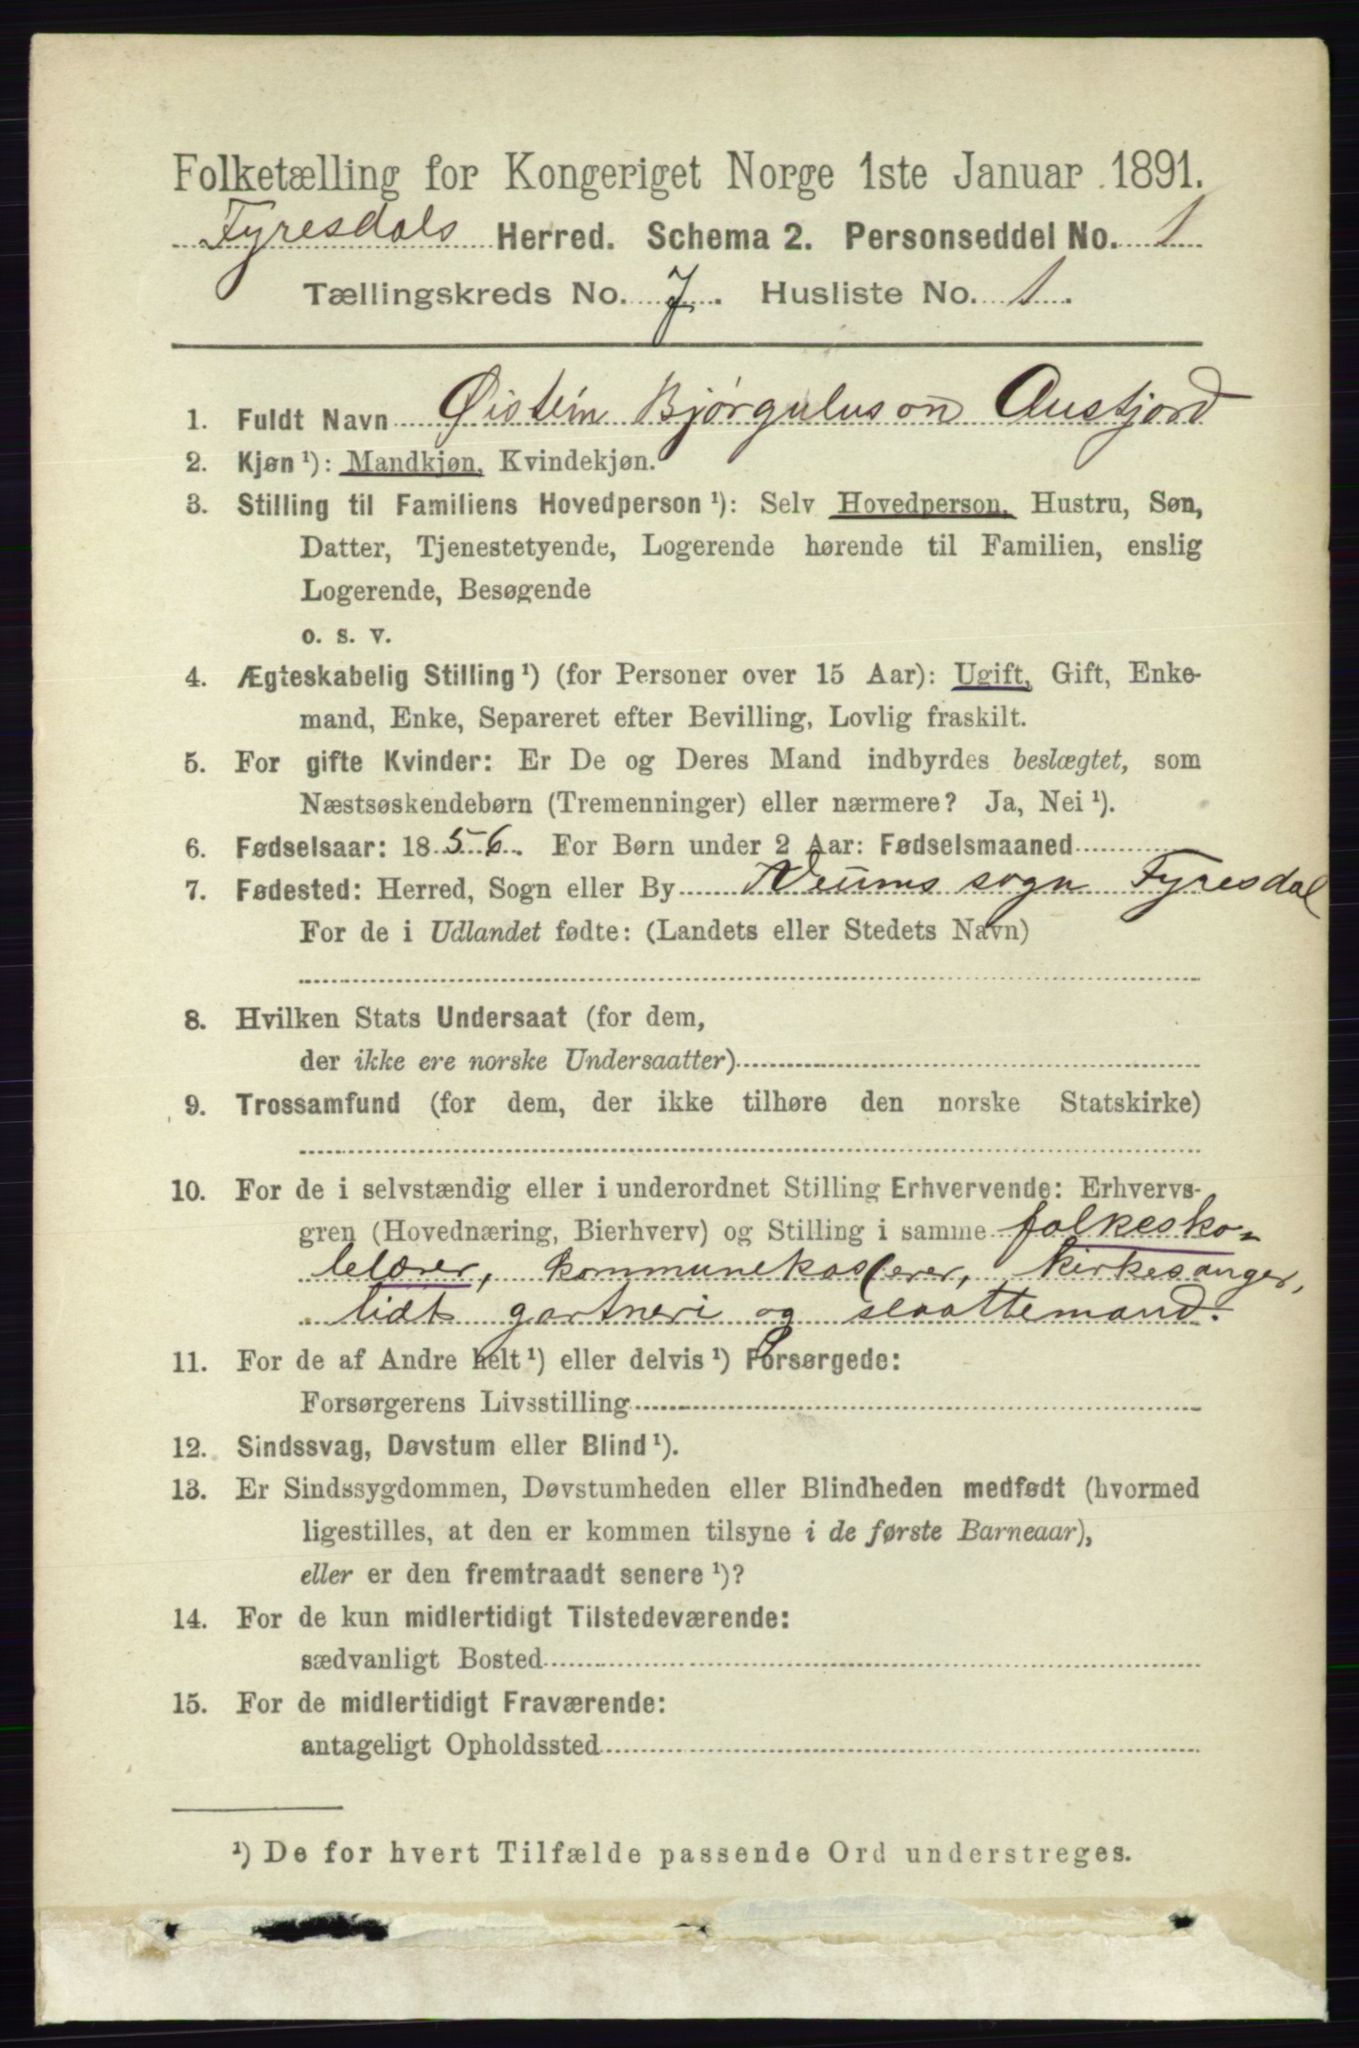 Folketælling for Kongeriget Norge 1ste Januar 1891.
Fyresdals Herred. Schema 2. Personseddel No. 1
Tællingskreds No. 7. Husliste No. 1.
1. Fuldt Navn Øistein Bjørguluson Austjord
2. Kjøn¹): Mandkjøn, Kvindekjøn.
3. Stilling til Familiens Hovedperson¹): Selv Hovedperson, Hustru, Søn,
Datter, Tjenestetyende, Logerende hørende til Familien, enslig
Logerende, Besøgende
o. s. v.
4. Ægteskabelig Stilling¹) (for Personer over 15 Aar): Ugift, Gift, Enke-
mand, Enke, Separeret efter Bevilling, Lovlig fraskilt.
5. For gifte Kvinder: Er De og Deres Mand indbyrdes beslægtet, som
Næstsøskendebørn (Tremenninger) eller nærmere? Ja, Nei¹).
6. Fødselsaar: 1856. For Børn under 2 Aar: Fødselsmaaned
7. Fødested: Herred, Sogn eller By Veums sogn Fyresdal
For de i Udlandet fødte: (Landets eller Stedets Navn)
8. Hvilken Stats Undersaat (for dem,
der ikke ere norske Undersaatter)
9. Trossamfund (for dem, der ikke tilhøre den norske Statskirke)
10. For de i selvstændig eller i underordnet Stilling Erhvervende: Erhvervs-
gren (Hovednæring, Bierhverv) og Stilling i samme folkesko-
lelærer, kommunekasserer, kirkesanger,
lidt gartneri og slaattemand.
11. For de af Andre helt¹) eller delvis¹) Forsørgede:
Forsørgerens Livsstilling
12. Sindssvag, Døvstum eller Blind¹).
13. Er Sindssygdommen, Døvstumheden eller Blindheden medfødt (hvormed
ligestilles, at den er kommen tilsyne i de første Barneaar),
eller er den fremtraadt senere¹)?
14. For de kun midlertidigt Tilstedeværende:
sædvanligt Bosted
15. For de midlertidigt Fraværende:
antageligt Opholdssted
¹) De for hvert Tilfælde passende Ord understreges.